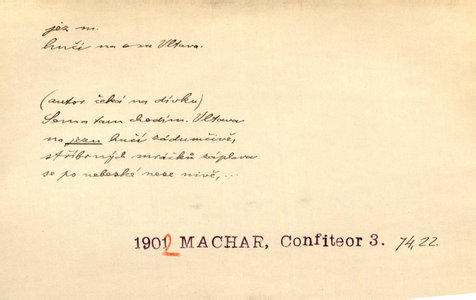 jez m.
hučí na esu Vltava.
(autor čeká na dívku)
Sem a tam chodím. Vltava
na jezu hučí zádumčivě,
stříbrných mráčků záplava
se po nebeské nese nivě,...
1902 MACHAR, Confiteor 3. 74,22.